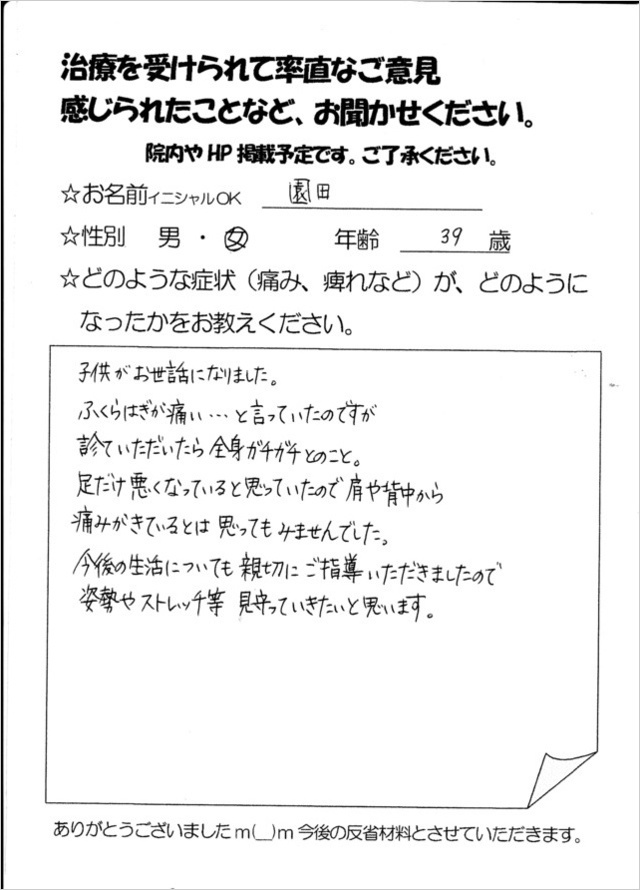 治療を受けられて率直なご意見
感じられたことなど、お聞かせください。
院内や HP 掲載予定です。ご了承ください。
☆お名前イニシャルOK 園田
☆性別 男・女 年齢 39 歳
☆どのような症状（痛み、痺れなど）が、どのように
なったかをお教えください。
子供がお世話になりました。
ふくらはぎが痛い…と言っていたのですが
診ていただいたら全身ガチガチとのこと。
足だけ悪くなっていると思っていたので肩や背中から
痛みがきているとは思ってもみませんでした。
今後の生活についても親切にご指導いただきましたので
姿勢やストレッチ等 見守っていきたいと思います。
ありがとうございましたm(__)m今後の反省材料とさせていただきます。